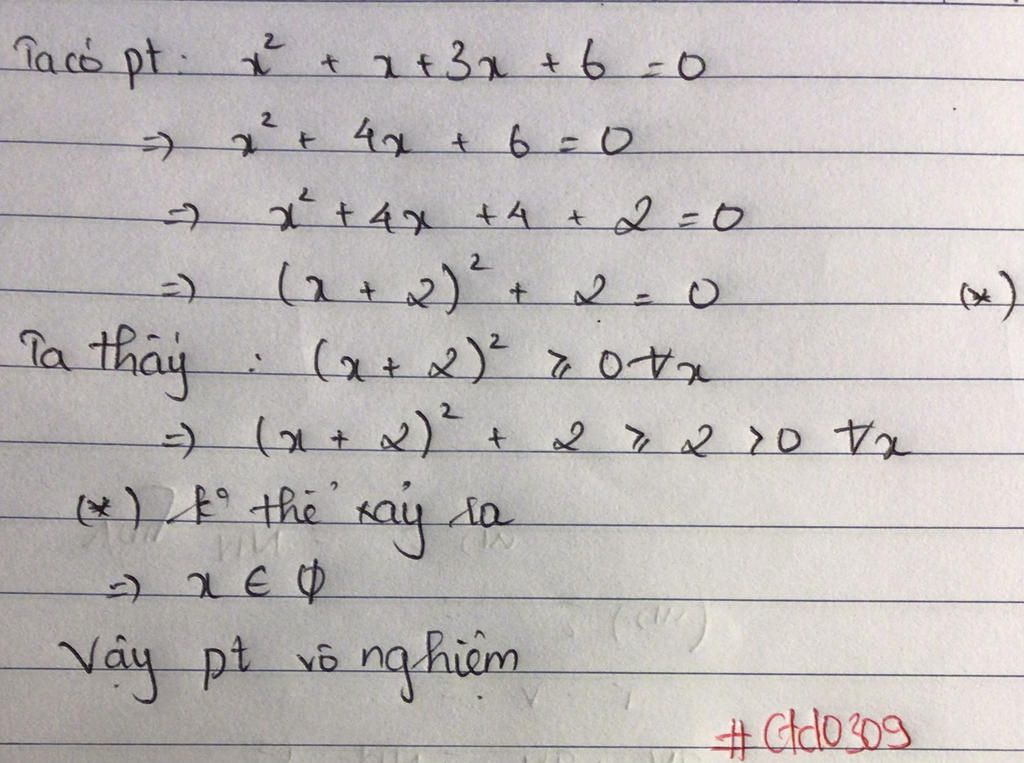 Ta có pt: x² + x + 3x + 6 = 0
=> x² + 4x + 6 = 0
=> x² + 4x + 4 + 2 = 0
=> (x + 2)² + 2 = 0 (*)
Ta thấy : (x + 2)² ⩾ 0 ∀x
=> (x + 2)² + 2 ⩾ 2 > 0 ∀x
(*) k° thể xảy ra
=> x ∈ ϕ
Vậy pt vô nghiệm
# Ctd0309